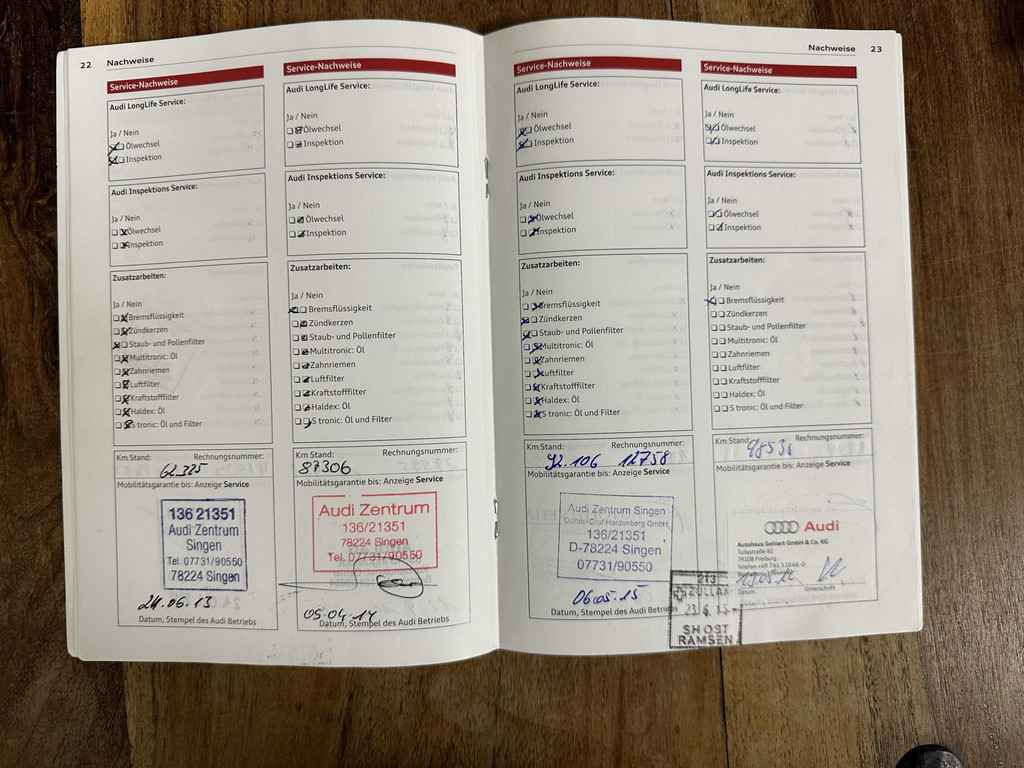 22 Nachweise
Service-Nachweise
Audi LongLife Service:
Ja / Nein
Ölwechsel
Inspektion
Audi Inspektions Service:
Ja / Nein
Ölwechsel
Inspektion
Zusatzarbeiten:
Ja / Nein
Bremsflüssigkeit
Zündkerzen
Staub- und Pollenfilter
Multitronic: Öl
Zahnriemen
Luftfilter
Kraftstofffilter
Haldex: Öl
S tronic: Öl und Filter
Km Stand: Rechnungsnummer:
62.325
Mobilitätsgarantie bis: Anzeige Service
136 21351
Audi Zentrum
Singen
Tel. 07731/90550
78224 Singen
24.06.13
Datum, Stempel des Audi Betriebs
Service-Nachweise
Audi LongLife Service:
Ja / Nein
Ölwechsel
Inspektion
Audi Inspektions Service:
Ja / Nein
Ölwechsel
Inspektion
Zusatzarbeiten:
Ja / Nein
Bremsflüssigkeit
Zündkerzen
Staub- und Pollenfilter
Multitronic: Öl
Zahnriemen
Luftfilter
Kraftstofffilter
Haldex: Öl
S tronic: Öl und Filter
Km Stand: Rechnungsnummer:
87306
Mobilitätsgarantie bis: Anzeige Service
Audi Zentrum
136/21351
78224 Singen
Tel. 07731/90550
09.04.14
Datum, Stempel des Audi Betriebs
Nachweise 23
Service-Nachweise
Audi LongLife Service:
Ja / Nein
Ölwechsel
Inspektion
Audi Inspektions Service:
Ja / Nein
Ölwechsel
Inspektion
Zusatzarbeiten:
Ja / Nein
Bremsflüssigkeit
Zündkerzen
Staub- und Pollenfilter
Multitronic: Öl
Zahnriemen
Luftfilter
Kraftstofffilter
Haldex: Öl
S tronic: Öl und Filter
Km Stand: Rechnungsnummer:
92.106 12758
Mobilitätsgarantie bis: Anzeige Service
Audi Zentrum Singen
Graf Hardenberg GmbH
136/21351
D-78224 Singen
07731/90550
06.05.15
Datum, Stempel des Audi Betriebs
Service-Nachweise
Audi LongLife Service:
Ja / Nein
Ölwechsel
Inspektion
Audi Inspektions Service:
Ja / Nein
Ölwechsel
Inspektion
Zusatzarbeiten:
Ja / Nein
Bremsflüssigkeit
Zündkerzen
Staub- und Pollenfilter
Multitronic: Öl
Zahnriemen
Luftfilter
Kraftstofffilter
Haldex: Öl
S tronic: Öl und Filter
Km Stand: Rechnungsnummer:
Mobilitätsgarantie bis: Anzeige Service
Audi
Autohaus GmbH & Co. KG
Freiburg
Datum Unterschrift
213
ZOLLAMT
23.6.15
SH OST
RAMSEN